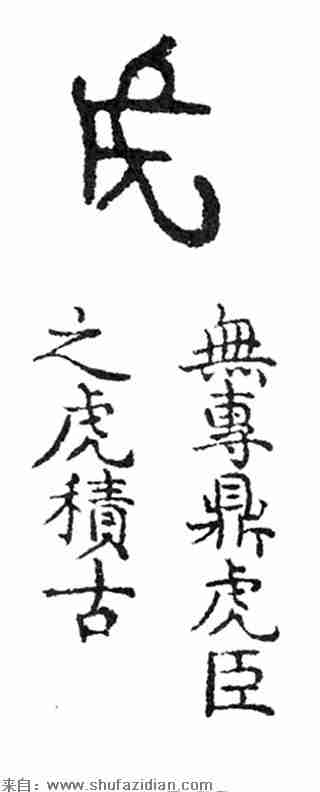 虎
無専鼎虎臣
之虎積古
来自：www.shufazidian.com